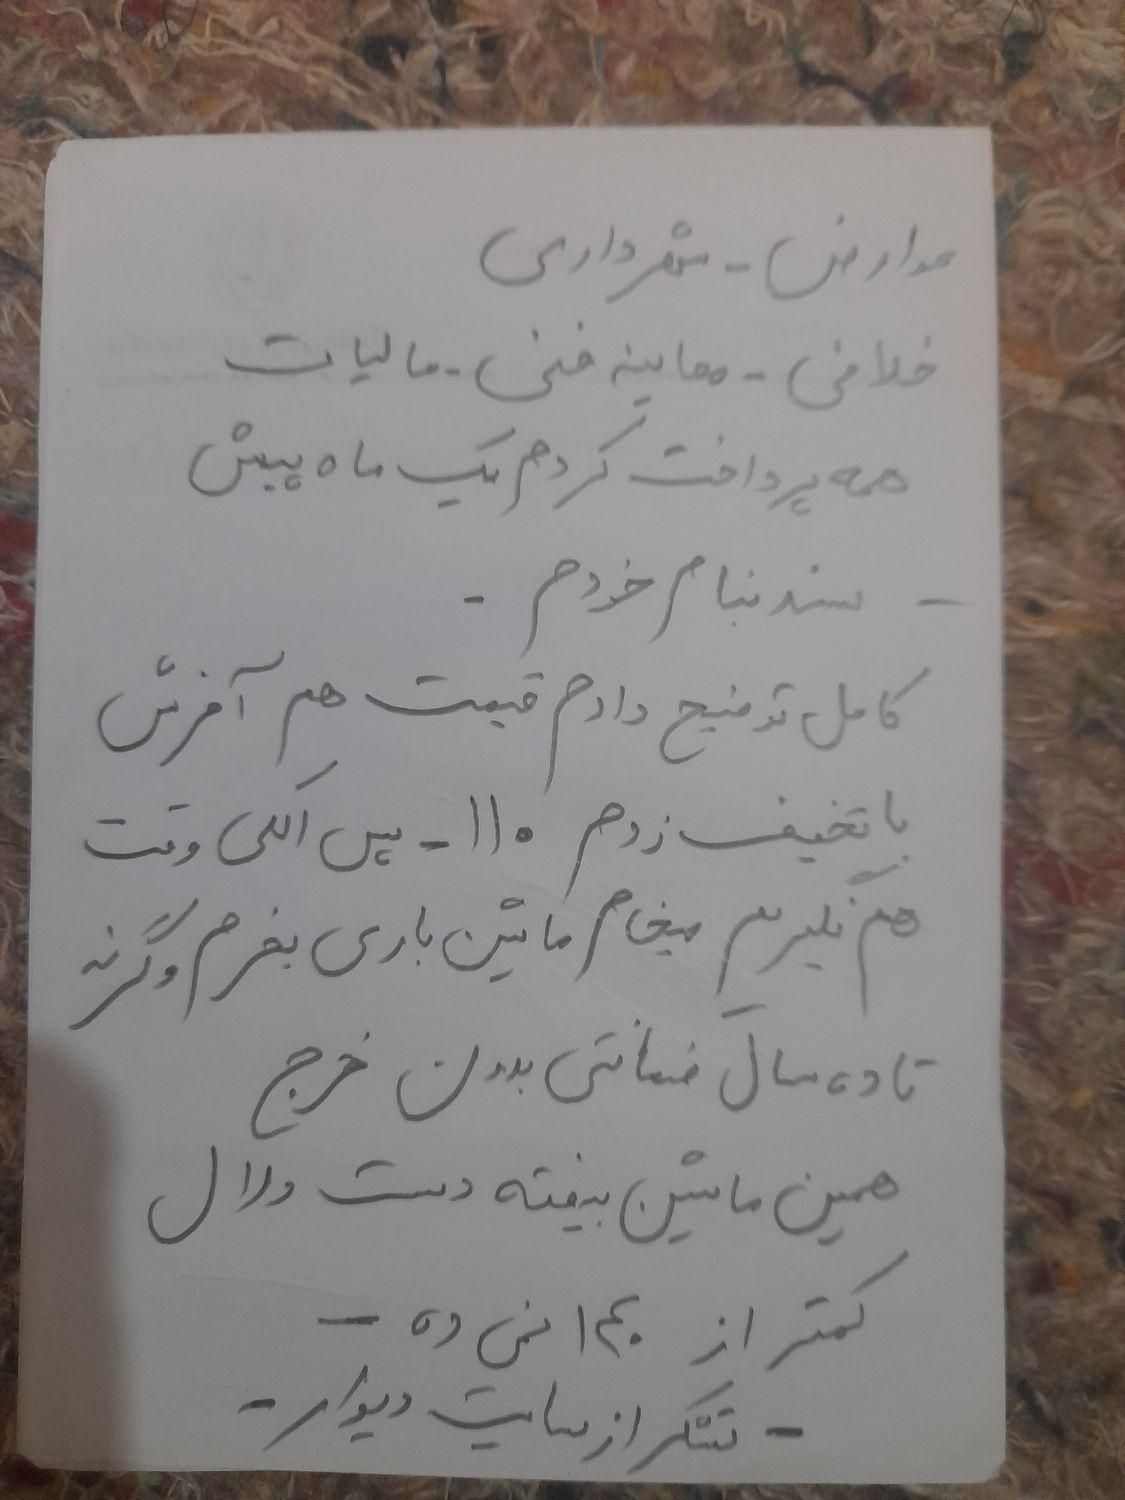 عوارض - شهرداری
خلافی - معاینه فنی - مالیات
همه پرداخت کردم یک ماه پیش
- سند بنام خودم -
کامل توضیح دادم قیمت هم آخرش
با تخفیف زدم ۱۱۰ - پس الکی وقت
هم نگیریم میخام ماشین باری بخرم وگرنه
تا ده سال ضمانتی بدون خرج
همین ماشین بیفته دست دلال
کمتر از ۱۴۰ نمی ده -
- تشکر از سایت دیوار -